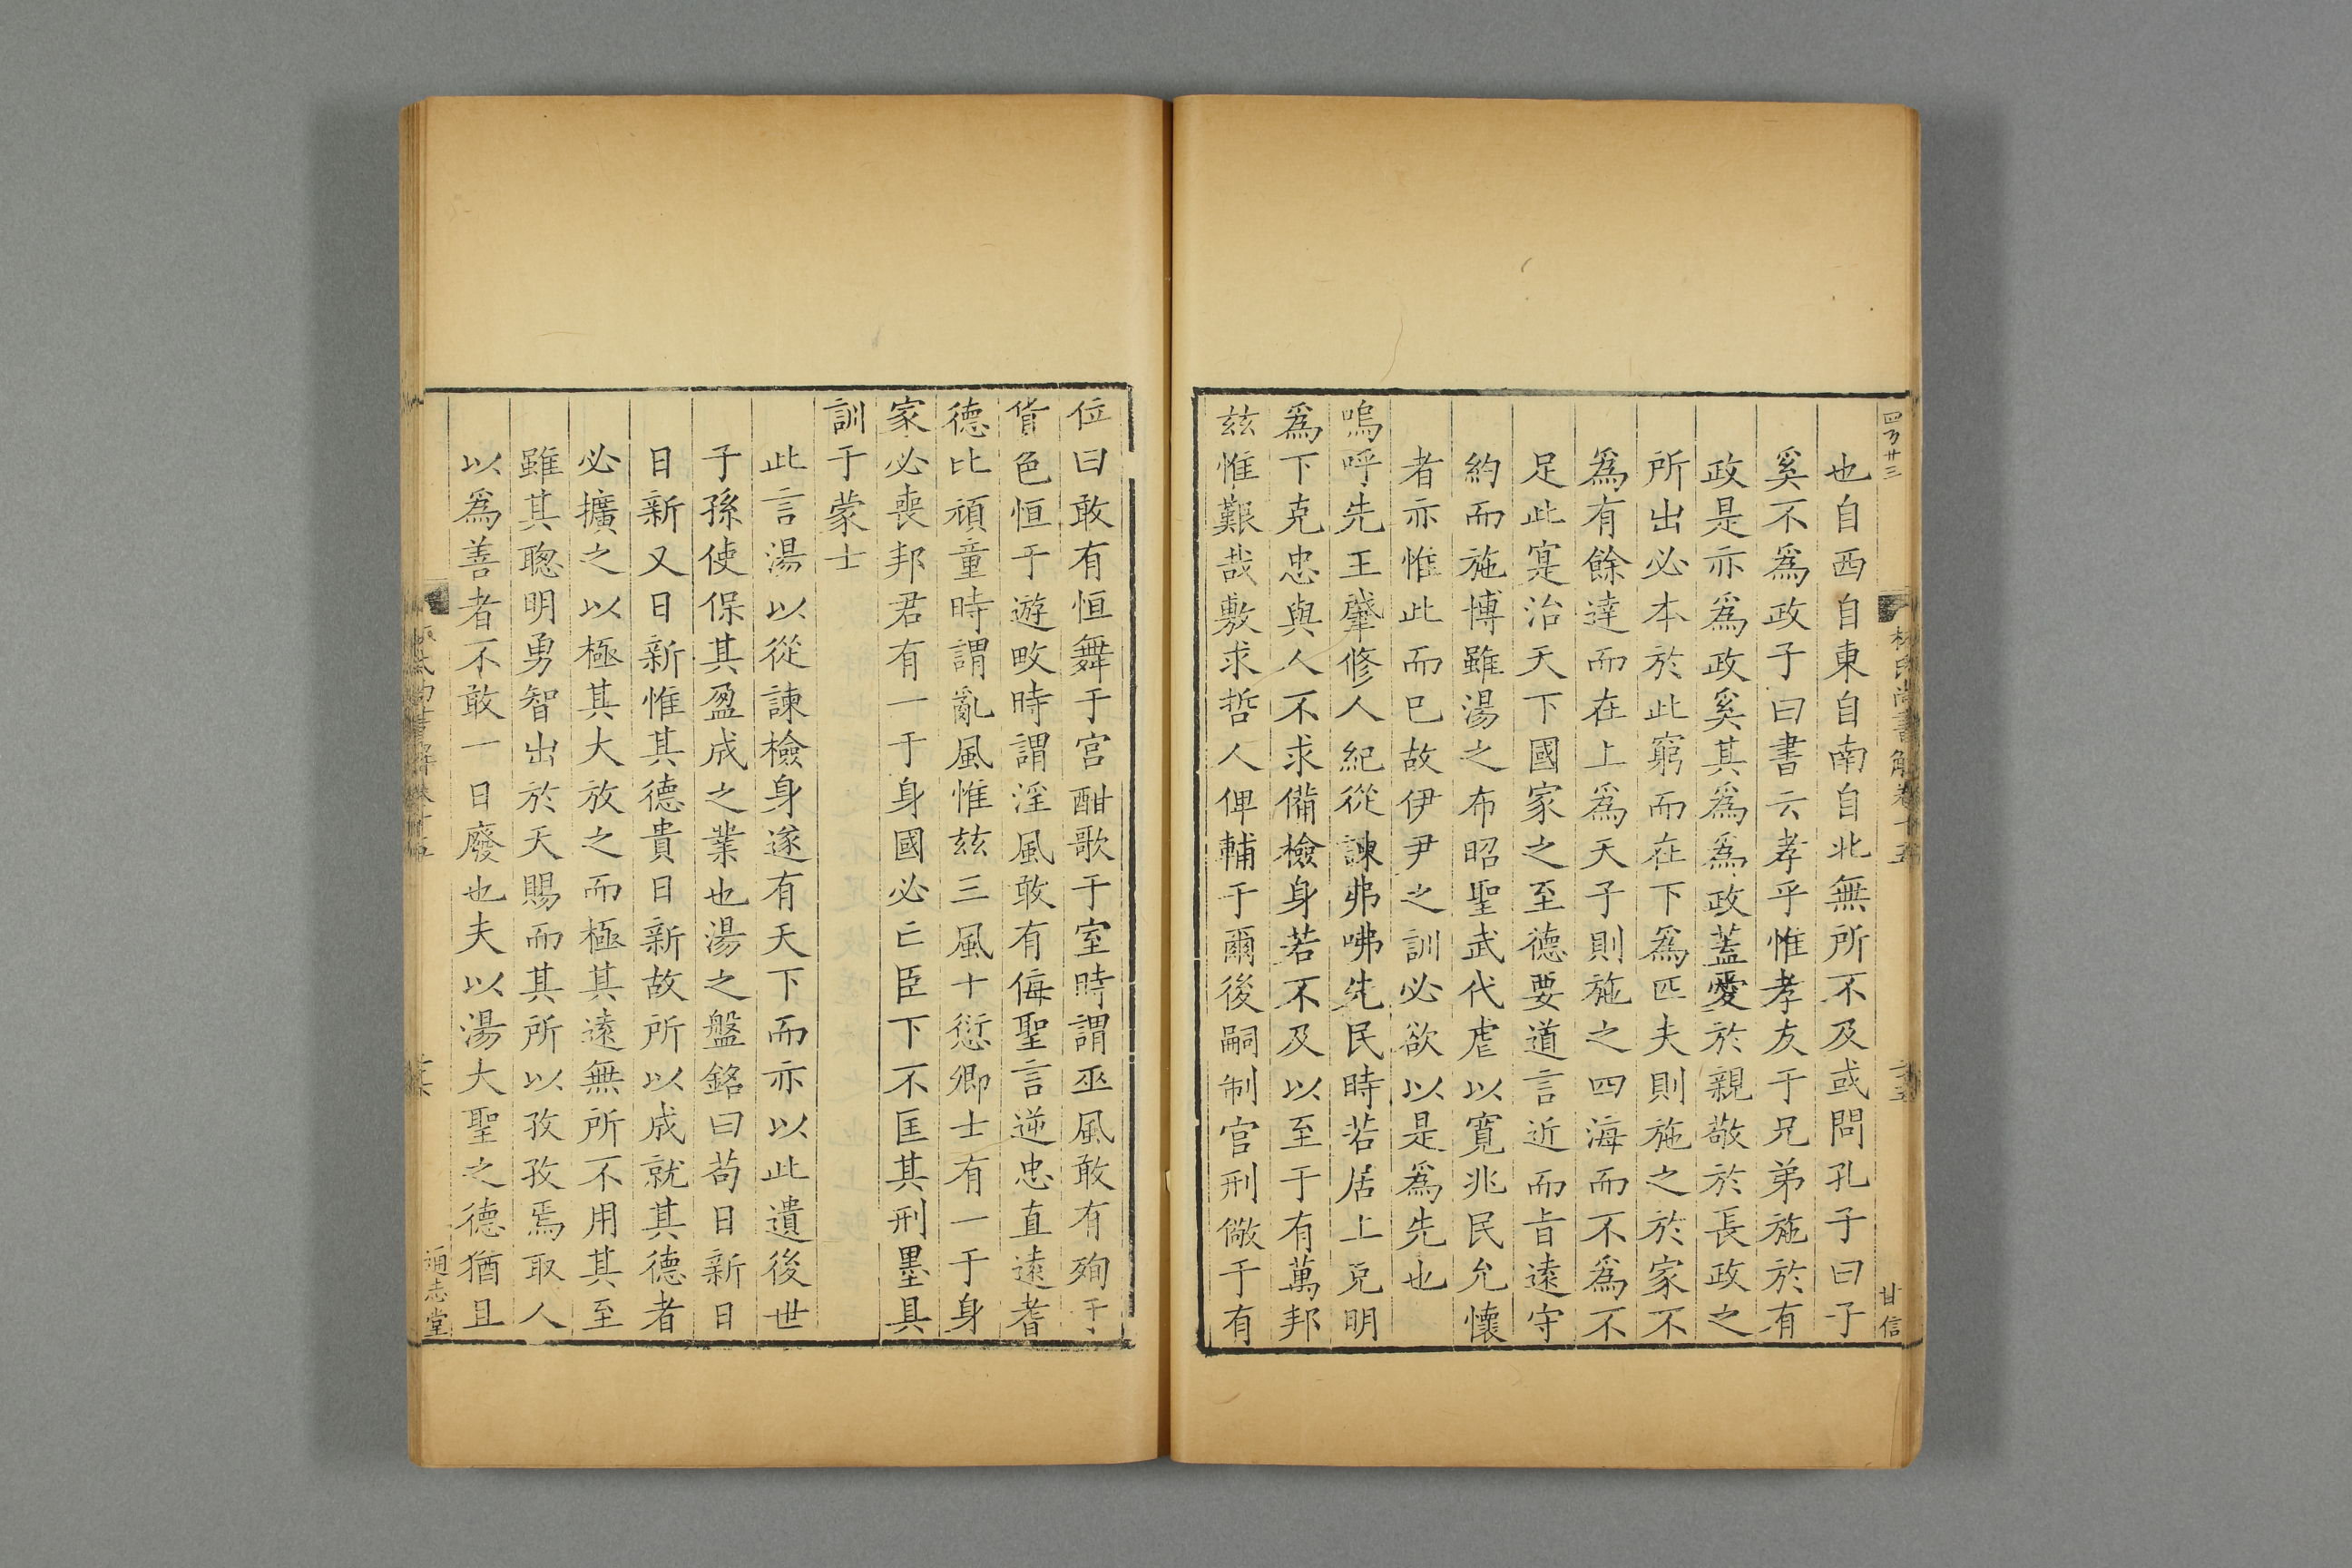 四 廿三
林氏尚書解卷十五
甘信
也自西自東自南自北無所不及或問孔子曰子
奚不爲政子曰書云孝乎惟孝友于兄弟施於有
政是亦爲政奚其爲爲政蓋愛於親敬於長政之
所出必本於此窮而在下爲匹夫則施之於家不
爲有餘達而在上爲天子則施之四海而不爲不
足此寔治天下國家之至德要道言近而旨遠守
約而施博雖湯之布昭聖武代虐以寬兆民允懷
者亦惟此而已故伊尹之訓必欲以是爲先也
嗚呼先王肇修人紀從諫弗咈先民時若居上克明
爲下克忠與人不求備檢身若不及以至于有萬邦
茲惟艱哉敷求哲人俾輔于爾後嗣制官刑儆于有
位曰敢有恒舞于宮酣歌于室時謂巫風敢有殉于
貨色恒于遊畋時謂淫風敢有侮聖言逆忠直遠耆
德比頑童時謂亂風惟茲三風十愆卿士有一于身
家必喪邦君有一于身國必亡臣下不匡其刑墨具
訓于蒙士
此言湯以從諫檢身遂有天下而亦以此遺後世
子孫使保其盈成之業也湯之盤銘曰苟日新日
日新又日新惟其德貴日新故所以成就其德者
必擴之以極其大放之而極其遠無所不用其至
雖其聰明勇智出於天賜而其所以孜孜焉取人
以爲善者不敢一日廢也夫以湯大聖之德猶且
通志堂